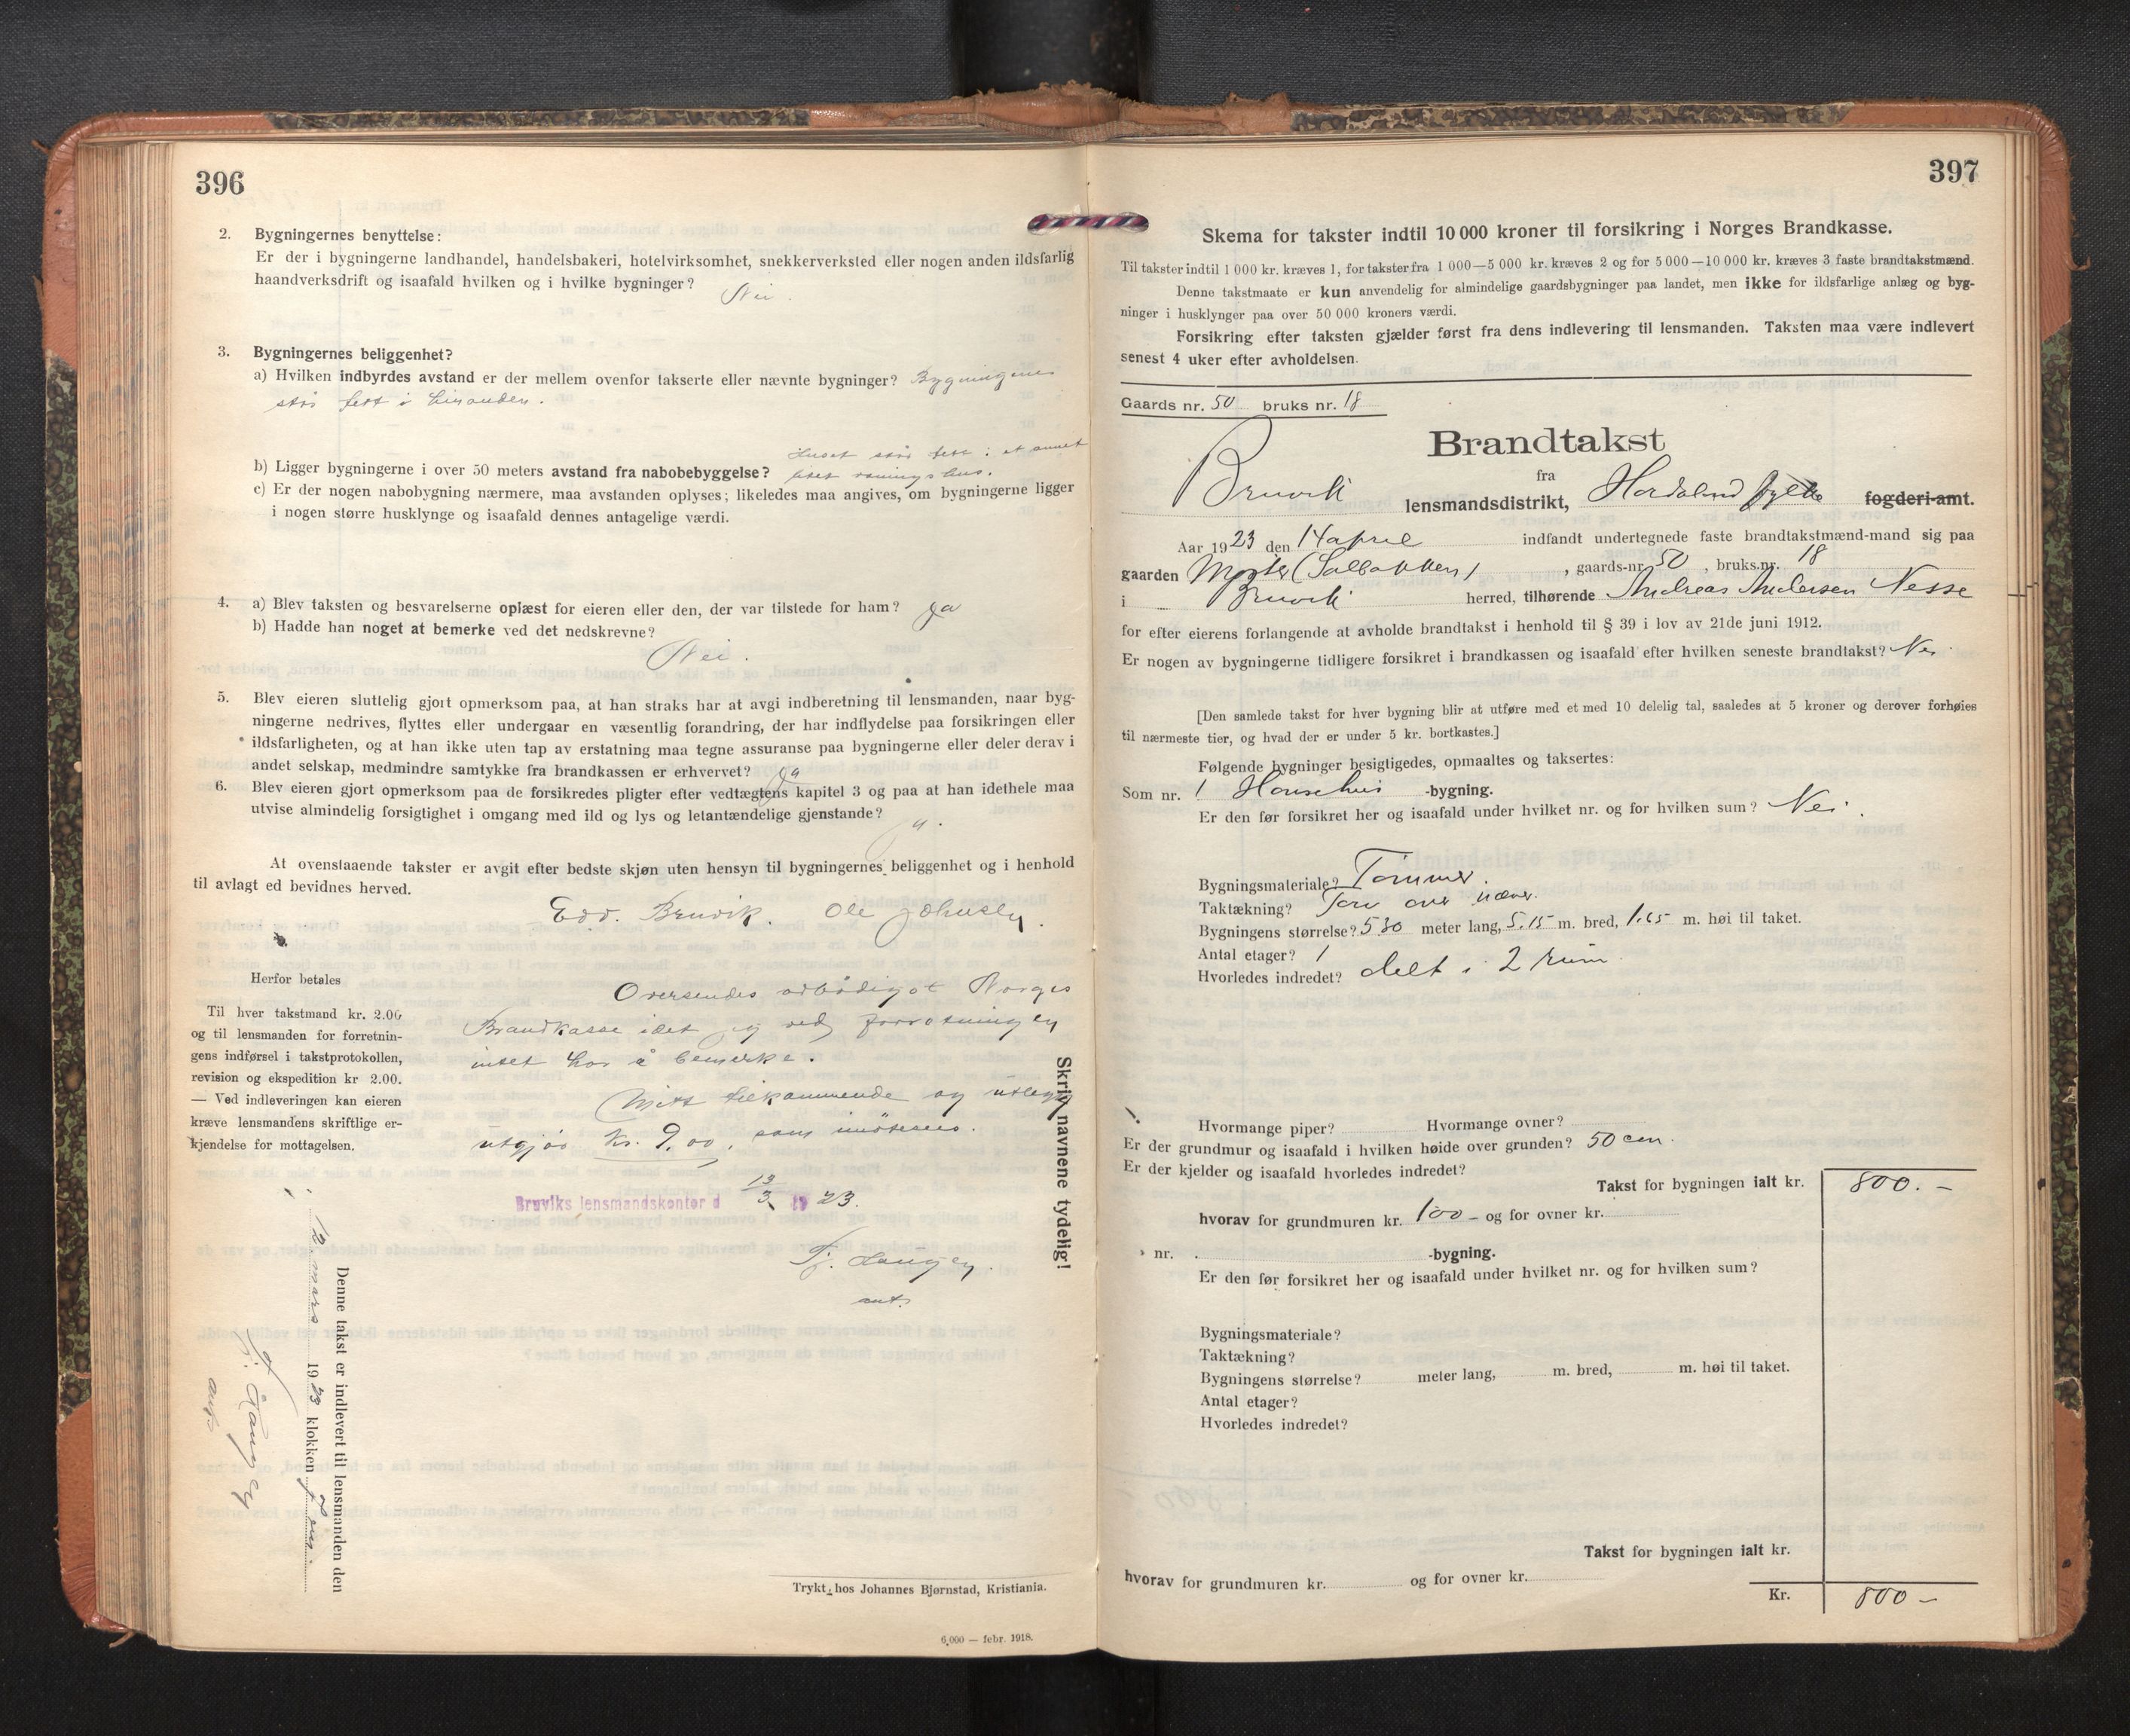 396
2. Bygningernes benyttelse:
Er der i bygningerne landhandel, handelsbakeri, hotelvirksomhet, snekkerverksted eller nogen anden ildsfarlig
haandverksdrift og isaafald hvilken og i hvilke bygninger?
Nei.
3. Bygningernes beliggenhet?
a) Hvilken indbyrdes avstand er der mellem ovenfor takserte eller nævnte bygninger? Bygningene
står tett i hinanden.
Huset står tett i et annet
b) Ligger bygningerne i over 50 meters avstand fra nabobebyggelse?
c) Er der nogen nabobygning nærmere, maa avstanden oplyses; likeledes maa angives, om bygningerne ligger
i nogen større husklynge og isaafald dennes antagelige værdi.
4. a) Blev taksten og besvarelserne oplæst for eieren eller den, der var tilstede for ham? Ja
b) Hadde han noget at bemerke ved det nedskrevne?
Nei.
5. Blev eieren sluttelig gjort opmerksom paa, at han straks har at avgi indberetning til lensmanden, naar byg-
ningerne nedrives, flyttes eller undergaar en væsentlig forandring, der har indflydelse paa forsikringen eller
ildsfarligheten, og at han ikke uten tap av erstatning maa tegne assuranse paa bygningerne eller deler derav i
andet selskap, medmindre samtykke fra brandkassen er erhvervet? Ja
6. Blev eieren gjort opmerksom paa de forsikredes pligter efter vedtægtens kapitel 3 og paa at han idethele maa
utvise almindelig forsigtighet i omgang med ild og lys og letantændelige gjenstande?
At ovenstaaende takster er avgit efter bedste skjøn uten hensyn til bygningernes beliggenhet og i henhold
til avlagt ed bevidnes herved.
Edv. Bruvik. Ole
Herfor betales
Til hver takstmand kr. 2.00
og til lensmanden for forretnin-
gens indførsel i takstprotokollen,
revision og ekspedition kr 2.00.
— Ved indleveringen kan eieren
kræve lensmandens skriftlige er-
kjendelse for mottagelsen.
Oversendes ærbødigst Norges
Brandkasse idet jeg ved forretningen
intet har å bemerke.
Mitt tilkommende og utlegg
utgjør kr. 9,00, som imøtesees.
Bruviks lensmandskontor d 13/3 1923.
Haugen
Skriv navnene tydelig!
Denne takst er indlevert til lensmanden den
12 mars 1923 klokken
Haugen
Trykt hos Johannes Bjørnstad, Kristiania.
6,000 — febr. 1918.
397
Skema for takster indtil 10 000 kroner til forsikring i Norges Brandkasse.
Til takster indtil 1 000 kr. kræves 1, for takster fra 1 000—5 000 kr. kræves 2 og for 5 000—10 000 kr. kræves 3 faste brandtakstmænd.
Denne takstmaate er kun anvendelig for almindelige gaardsbygninger paa landet, men ikke for ildsfarlige anlæg og byg-
ninger i husklynger paa over 50 000 kroners værdi.
Forsikring efter taksten gjælder først fra dens indlevering til lensmanden. Taksten maa være indlevert
senest 4 uker efter avholdelsen.
Gaards nr. 50 bruks nr. 18
Brandtakst
fra
Bruvik lensmandsdistrikt, Hordaland fylke fogderi-amt.
Aar 1923 den 14 april indfandt undertegnede faste brandtakstmænd-mand sig paa
gaarden , gaards-nr. 50, bruks.nr. 18
i Bruvik herred, tilhørende Andreas Andersen Nesse
for efter eierens forlangende at avholde brandtakst i henhold til § 39 i lov av 21de juni 1912.
Er nogen av bygningerne tidligere forsikret i brandkassen og isaafald efter hvilken seneste brandtakst? Nei
[Den samlede takst for hver bygning blir at utføre med et med 10 delelig tal, saaledes at 5 kroner og derover forhøies
til nærmeste tier, og hvad der er under 5 kr. bortkastes.]
Følgende bygninger besigtigedes, opmaaltes og taksertes:
Som nr. 1 -bygning.
Er den før forsikret her og isaafald under hvilket nr. og for hvilken sum? Nei.
Bygningsmateriale? Tømmer.
Taktækning? Torv over næver.
Bygningens størrelse? 5.30 meter lang, 5.15 m. bred, 1.65 m. høi til taket.
Antal etager? 1
Hvorledes indredet? delt i 2 rum
Hvormange piper? Hvormange ovner?
Er der grundmur og isaafald i hvilken høide over grunden? 50 cm.
Er der kjelder og isaafald hvorledes indredet?
Takst for bygningen ialt kr. 800.-
hvorav for grundmuren kr. 100- og for ovner kr.
nr. -bygning.
Er den før forsikret her og isaafald under hvilket nr. og for hvilken sum?
Bygningsmateriale?
Taktækning?
Bygningens størrelse? meter lang, m. bred, m. høi til taket.
Antal etager?
Hvorledes indredet?
Takst for bygningen ialt kr.
hvorav for grundmuren kr. og for ovner kr.
Kr. 800-